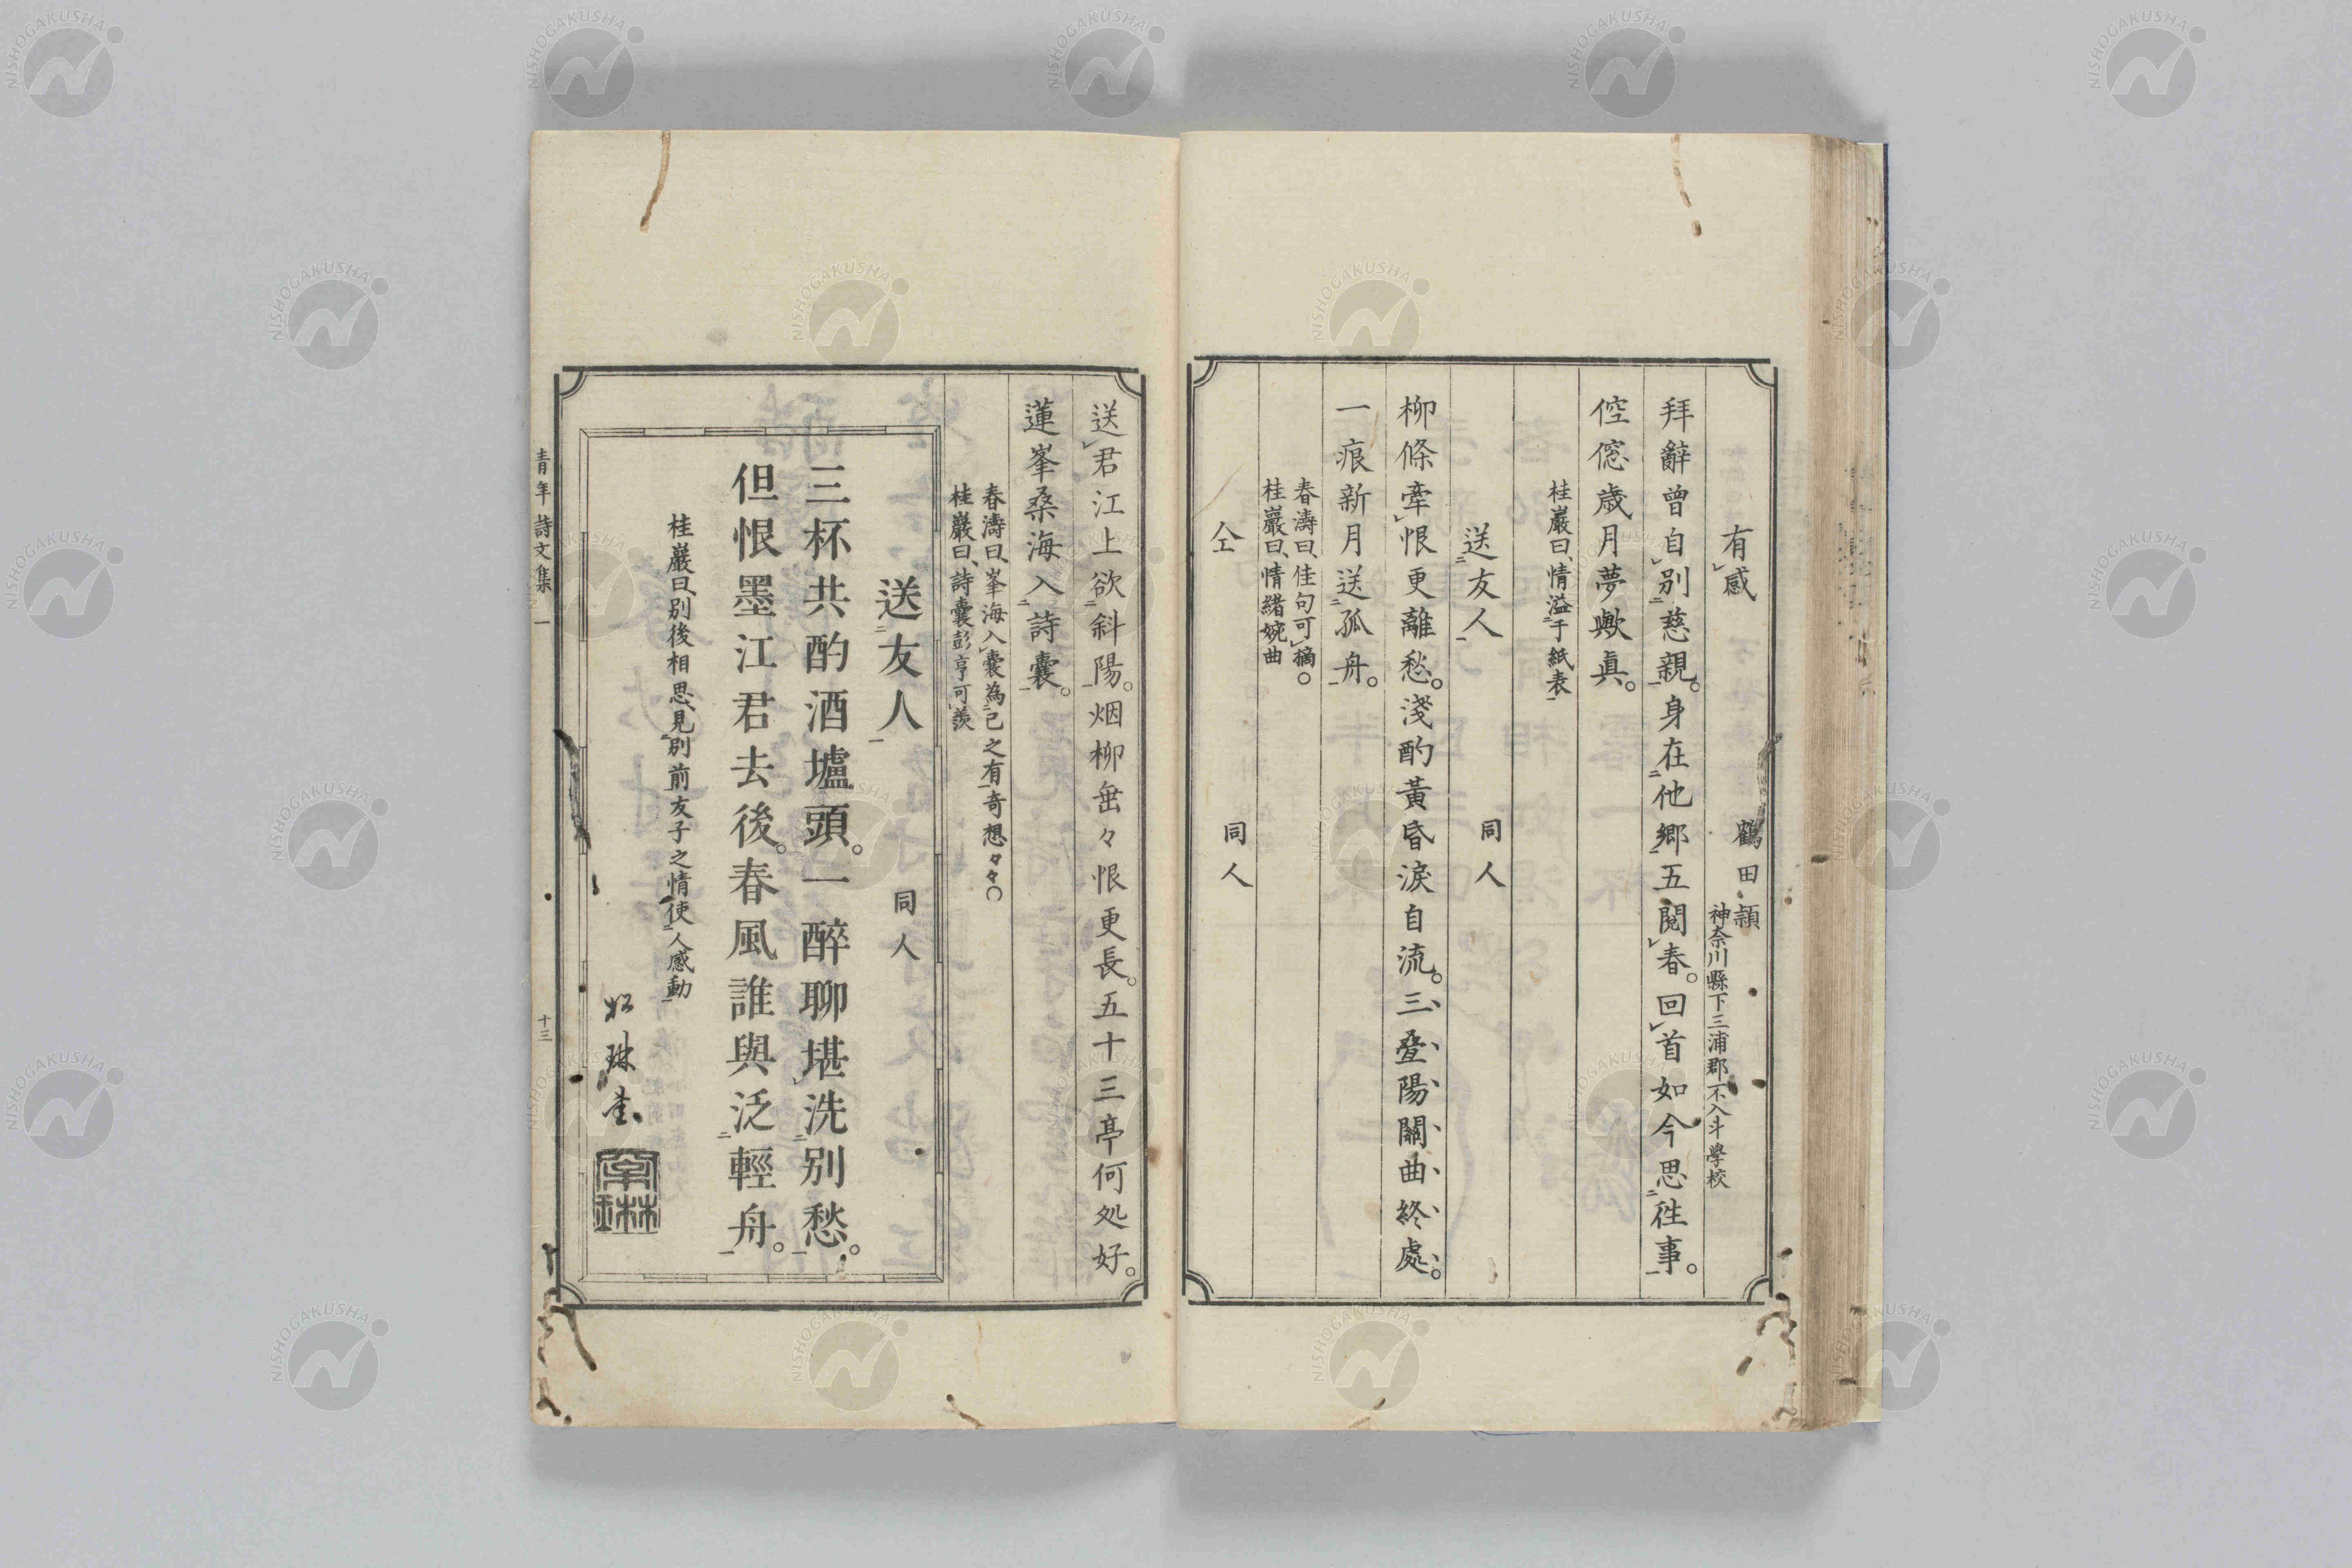 有感
鶴田顯
神奈川縣下三浦郡不入斗學校
拜辭曾自別慈親。身在他鄕五閱春。回首如今思徃事。
倥傯歳月夢歟眞。
桂巖曰、情溢于紙表
送友人
同人
柳條牽恨更離愁。淺酌黃昏淚自流。三疊陽關曲終處。
一痕新月送孤舟。
春濤曰、佳句可摘○
桂巖曰、情緒婉曲
仝
同人
送君江上欲斜陽。烟柳垂々恨更長。五十三亭何処好。
蓮峯桑海入詩囊。
春濤曰、峯海入囊為己之有奇想々々○
桂巖曰、詩囊彭亨可羨
送友人
同人
三杯共酌酒壚頭。一醉聊堪洗別愁。
但恨墨江君去後。春風誰與泛輕舟。
桂巖曰、別後相思、見別前友子之情使人感動
青年詩文集一
十三
NISHOGAKUSHA